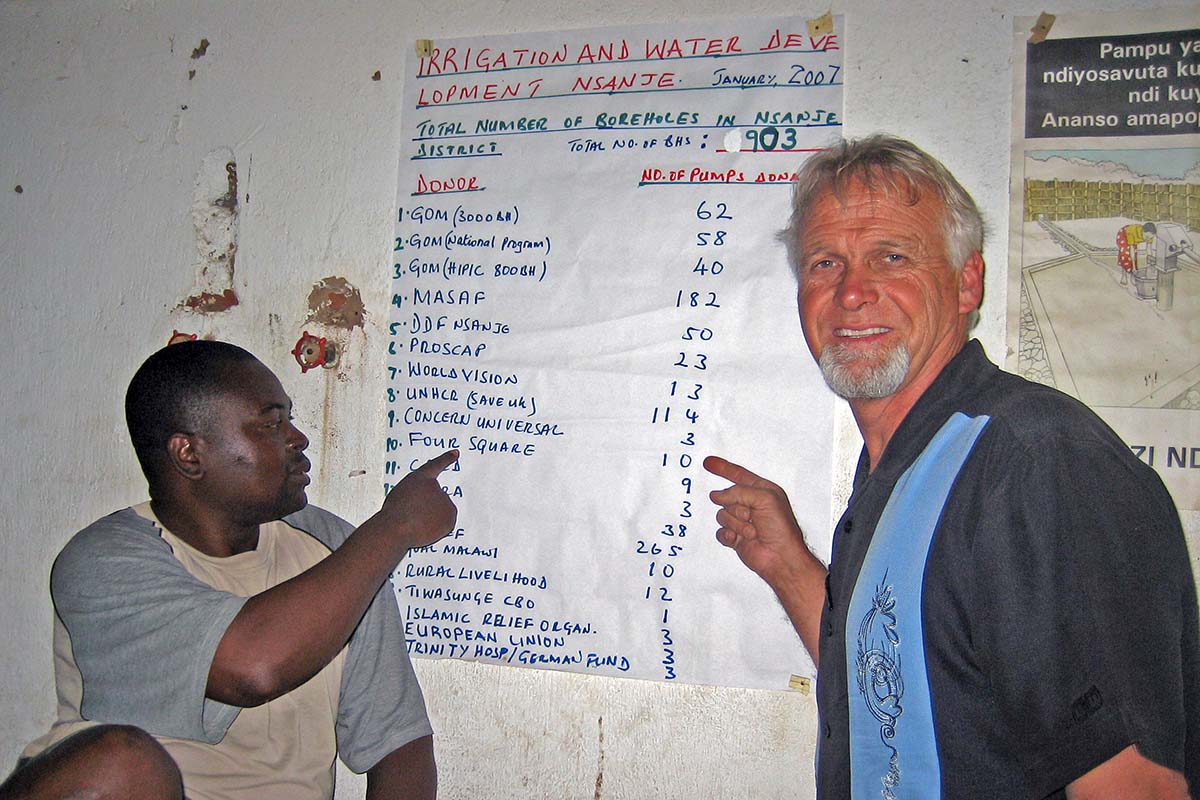 IRRIGATION AND WATER DEVE
LOPMENT NSANJE. JANUARY, 2007
TOTAL NUMBER OF BOREHOLES IN NSANJE
DISTRICT TOTAL NO. OF BHS : 903
DONOR NO. OF PUMPS DONA
1. GOM (3000BH) 62
2. GOM (National Program) 58
3. GOM (HIPIC 800BH) 40
4. MASAF 182
5. DDF NSANJE 50
6. PROSCAP 23
7. WORLD VISION 13
8. UNHCR (SAVE UK) 114
9. CONCERN UNIVERSAL 3
10. FOUR SQUARE 10
11. 9
3
38
MALAWI 265
RURAL LIVELIHOOD 10
TIWASUNGE CBO 12
ISLAMIC RELIEF ORGAN. 1
EUROPEAN UNION 3
TRINITY HOSP/GERMAN FUND 3
3
Pampu ya
ndiyosavuta ku
ndi kuy
Ananso amapo
ZI ND